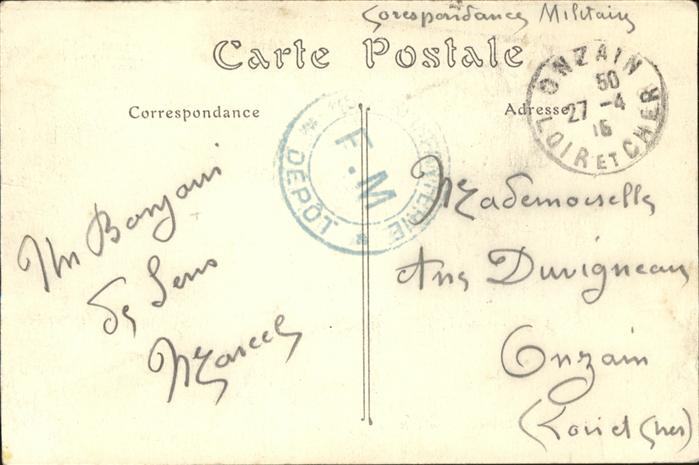 Corespondance Militaire
Carte Postale
ONZAIN
50
27 -4
16
LOIR ET CHER
Correspondance
Adresse
INFANTERIE
F.M
* DÉPÔT *
Un Bonjour
de Sens
Marcel
Mademoiselle
Duvigneau
Onzain
(Loir et Cher)